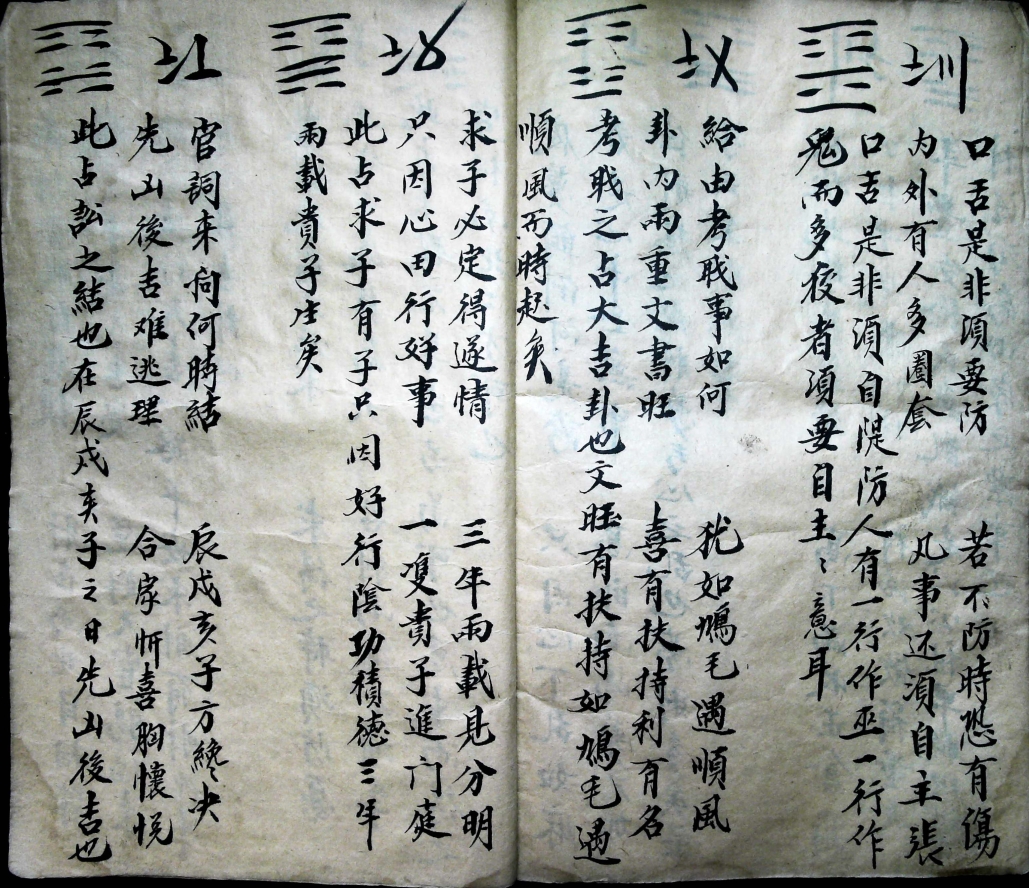 〦〣
口舌是非須要防 若不防時恐有傷
内外有人多圈套 凡事还須自主張
口舌是非須自隄防人有一行作巫一行作
鬼而多疫者須要自主〻意耳
〦〤
給由考戝事如何 犹如鴻毛遇順風
卦内兩重文書旺 喜有扶持利有名
考戝之占大吉卦也文旺有扶持如鴻毛遇
順風而時起矣
〦〥
求子必定得遂情 三年兩載見分明
只因心田行好事 一隻貴子進门庭
此占求子有子只因好行陰功積德三年
兩載貴子生矣
〦〦
官詞来问何時結 辰戌亥子方纔决
先凶後吉难逃理 合家忻喜胸懷悦
此占訟之結也在辰戌亥子之日先凶後吉也